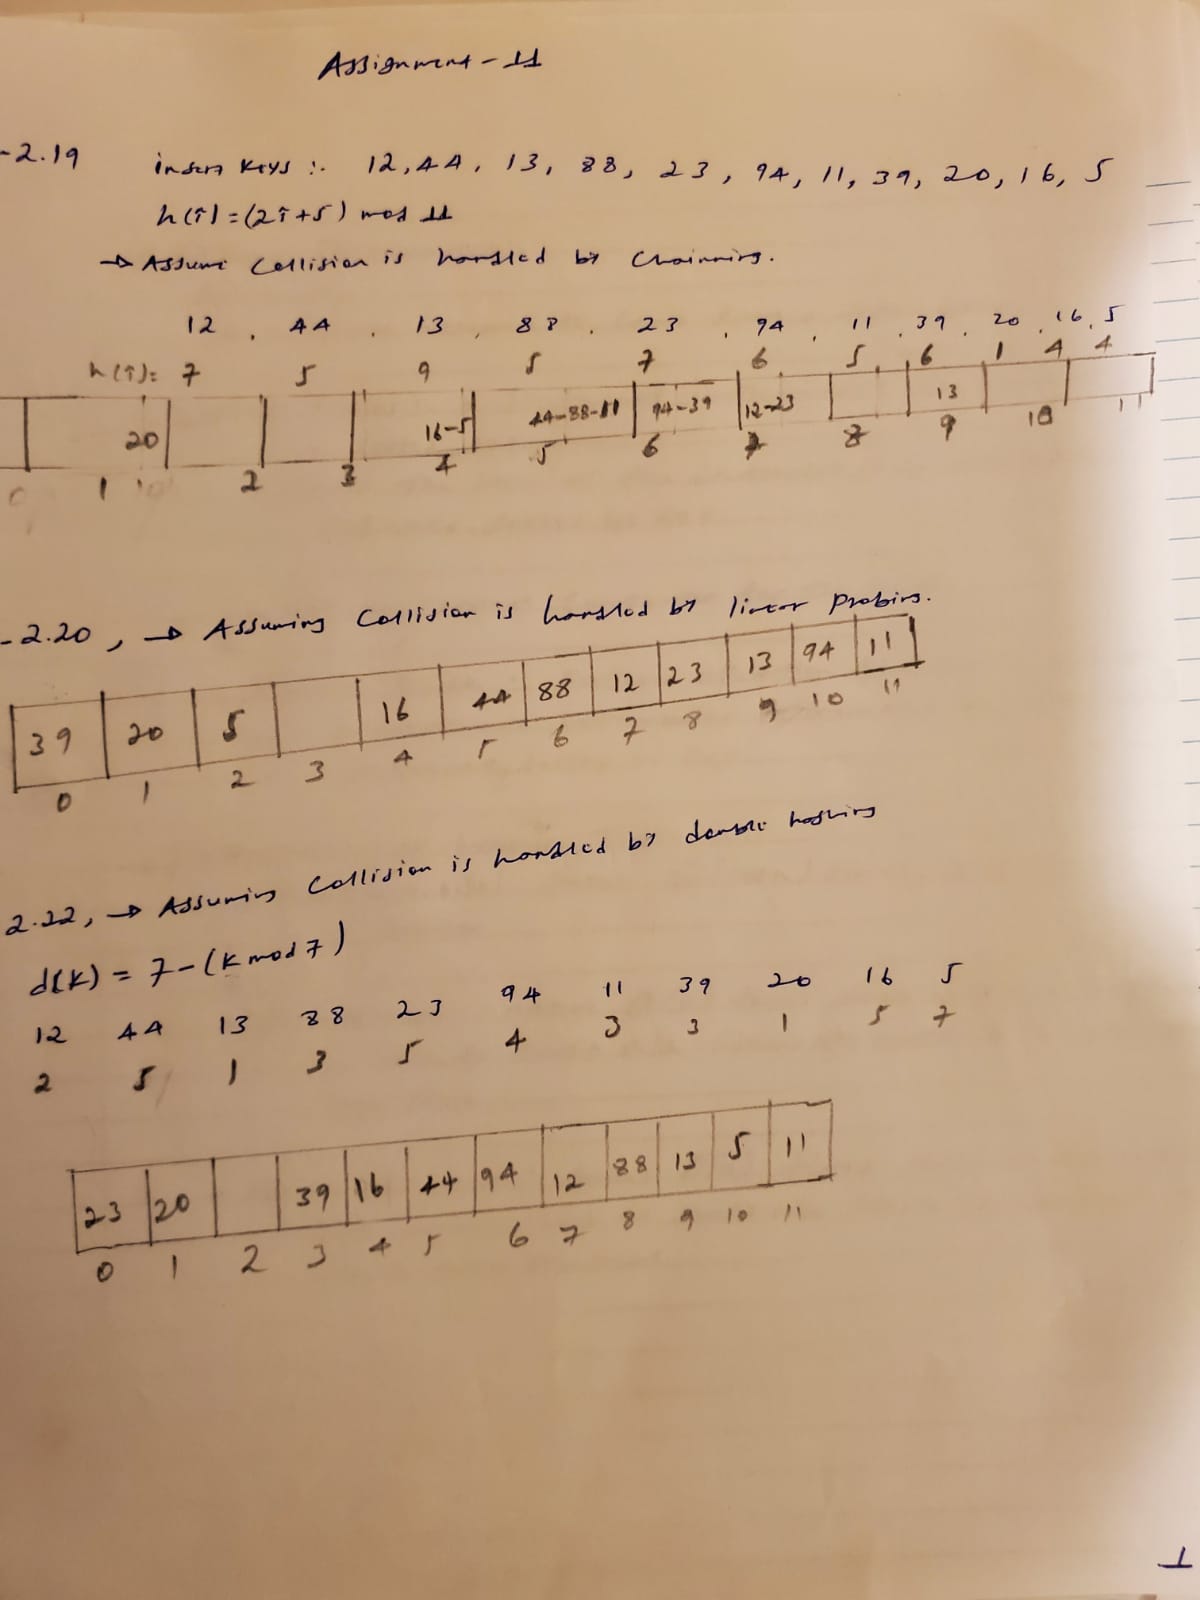 Assignment - 11
-2.19 insert Keys :- 12, 44, 13, 88, 23, 94, 11, 39, 20, 16, 5
h(i) = (2i+5) mod 11
→ Assume Collision is handled by Chainning.
12 , 44 , 13 , 88 , 23 , 94 , 11 , 39 , 20 , 16 , 5
h(i): 7 5 9 5 7 6 5 6 1 4 4
20 16-5 44-88-11 94-39 12-23 13
0 1 2 3 4 5 6 7 8 9 10 11
-2.20 , → Assuming Collision is handled by linear Probing.
39 20 5 16 44 88 12 23 13 94 11
0 1 2 3 4 5 6 7 8 9 10 11
2.22, → Assuming Collision is handled by double hashing
d(K) = 7-(K mod 7)
12 44 13 88 23 94 11 39 20 16 5
2 5 1 3 5 4 3 3 1 5 7
23 20 39 16 44 94 12 88 13 5 11
0 1 2 3 4 5 6 7 8 9 10 11